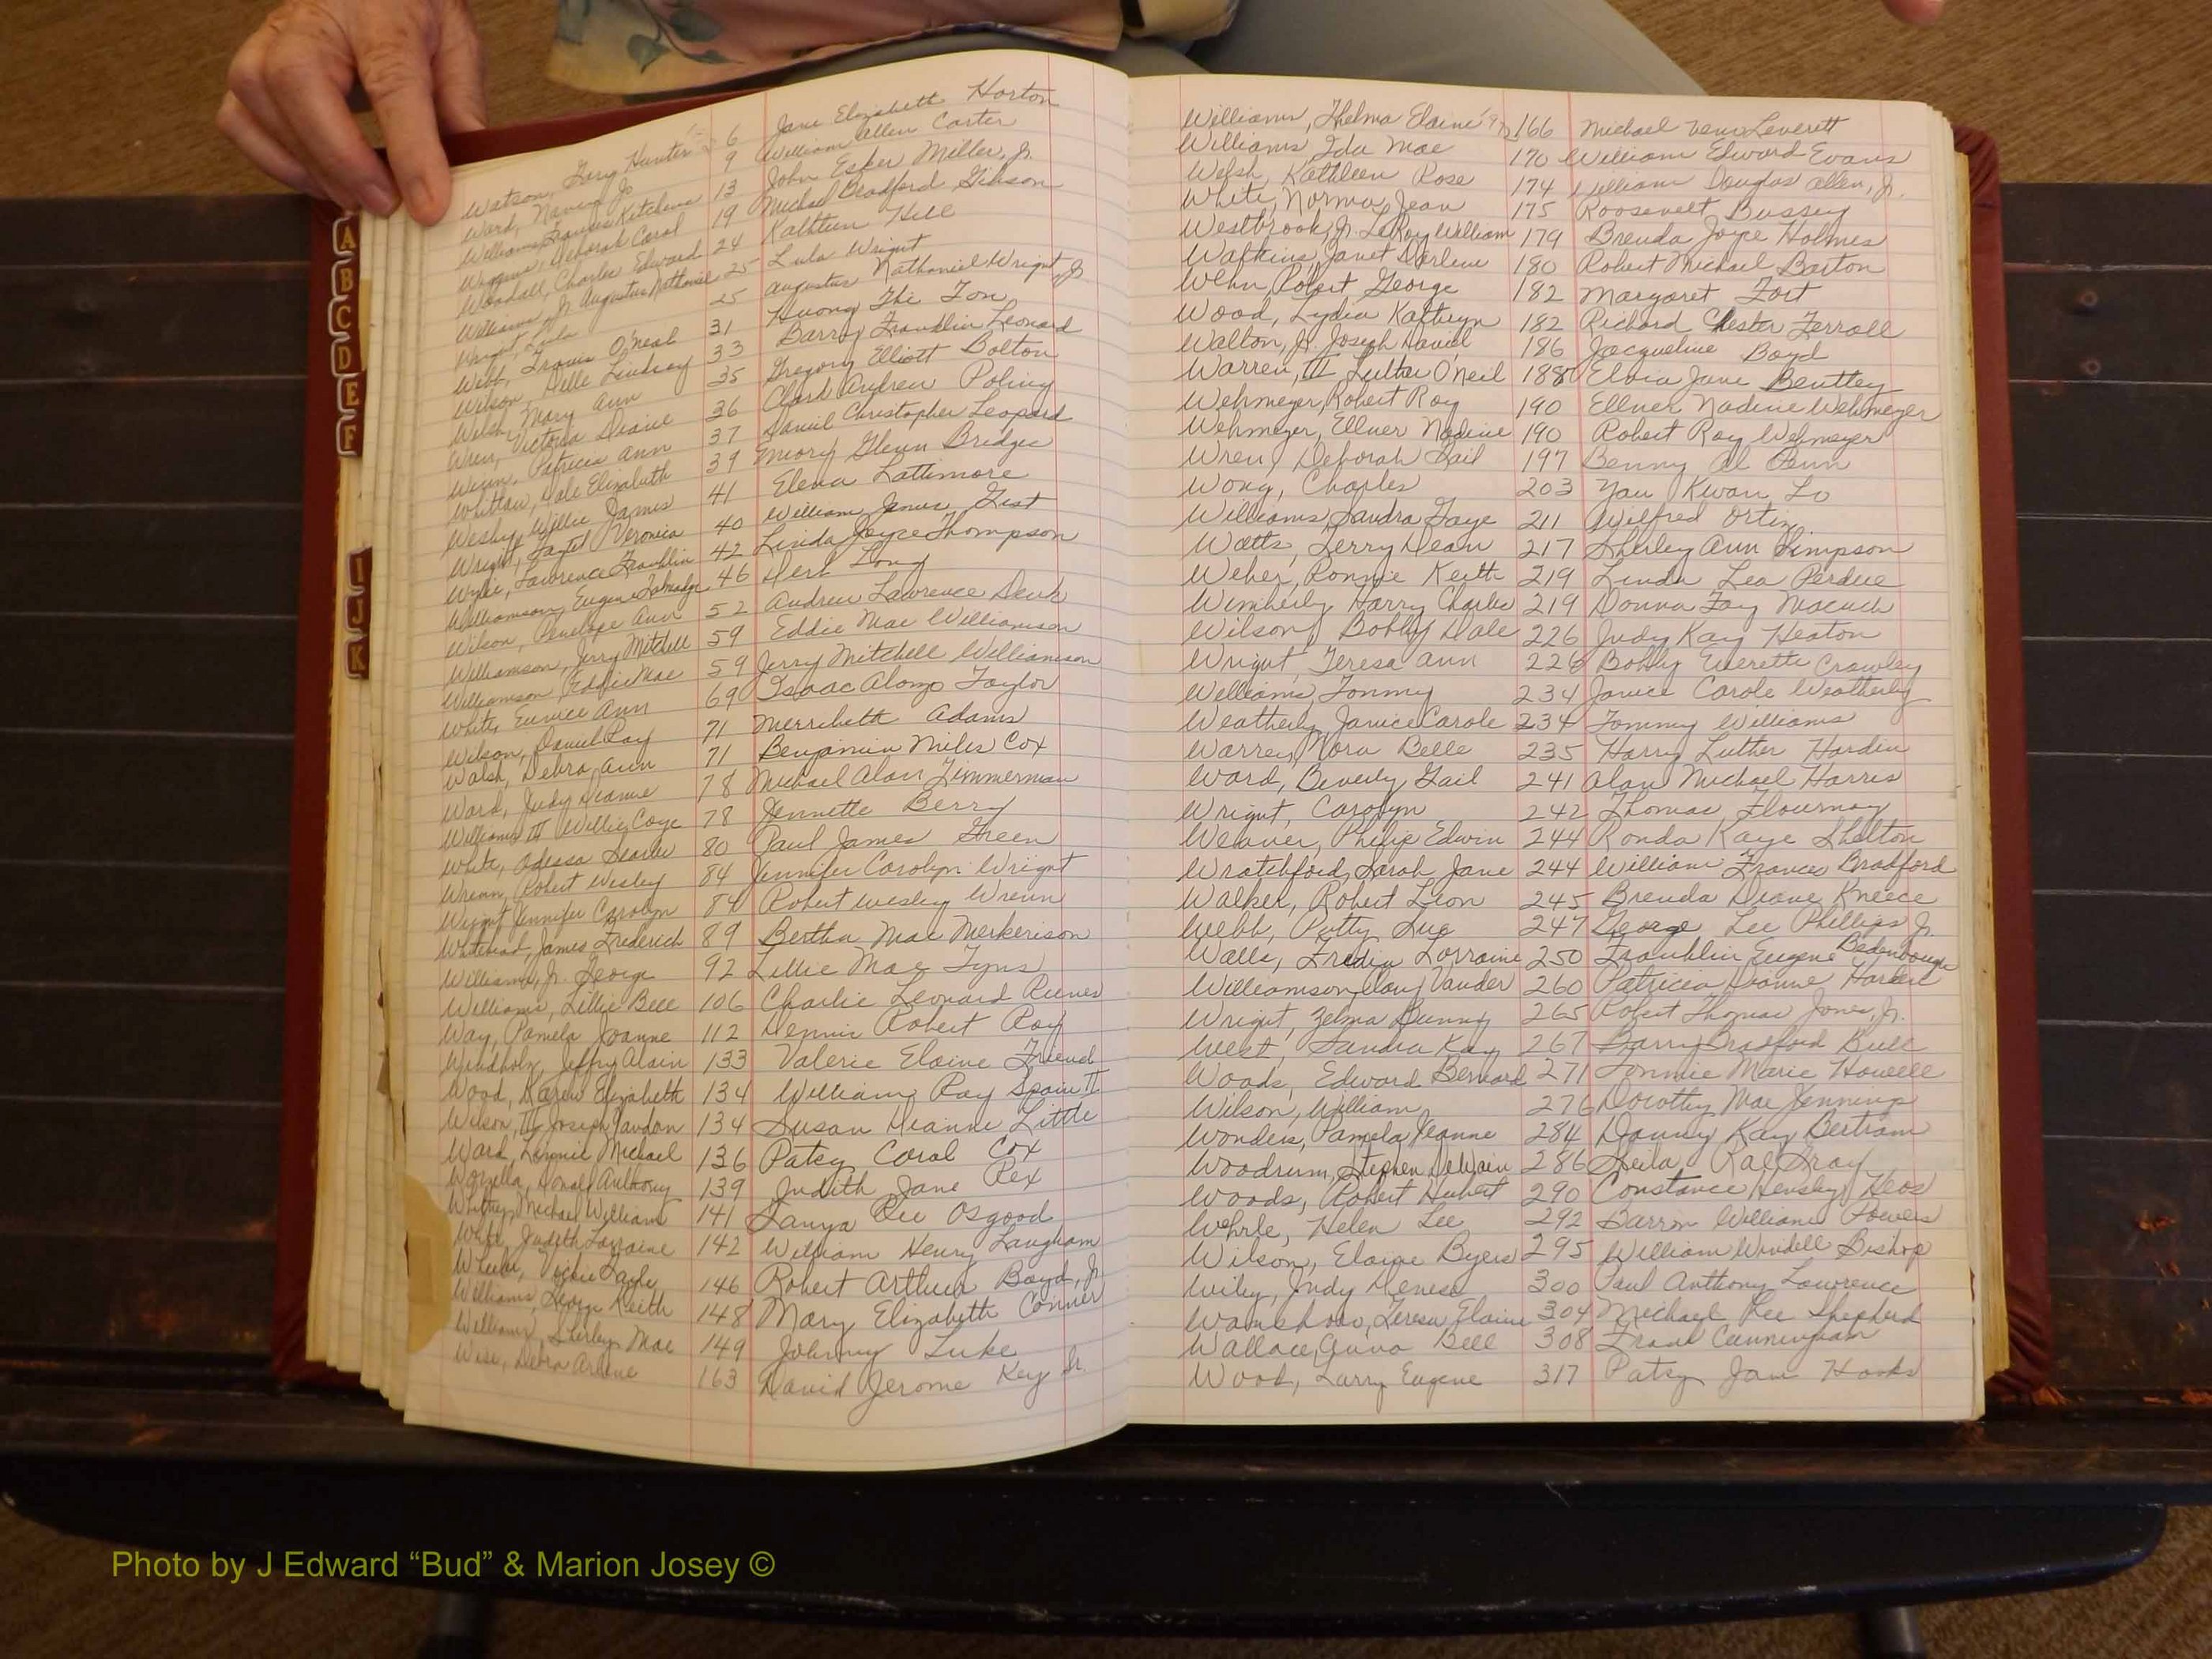 Watson, Gary Hunter 6 Jane Elizabeth Horton
Ward, Nancy Jo 9 William Allen Carter
Williams, Frances Kitchens 13 John Esker Miller, Jr.
Wiggins, Deborah Carol 19 Michael Bradford Gibson
Woodall, Charles Edward 24 Kathleen Hill
Williams Jr. Augustus Nathaniel 25 Lula Wright
Wright, Lula 25 Augustus Nathaniel Wright Jr
Webb, Travis O'neal 31 Huong Thi Ton
Wilson, Delle Lindsay 33 Barry Franklin Leonard
Welsh, Mary Ann 35 Gregory Elliott Bolton
Wren, Victoria Diane 36 Clark Andrew Poling
Winn, Patricia Ann 37 Daniel Christopher Leopard
Whittow, Dale Elizabeth 39 Emory Glenn Bridges
Wesby, Willie James 41 Elena Lattimore
Wright, Veronica 40 William James Gist
Wylie, Lawrence Franklin 42 Linda Joyce Thompson
Williamson, Eugene Talmadge 46 Long
Wilson, Penelope Ann 52 Andrew Lawrence
Williamson, Jerry Mitchell 59 Eddie Mae Williamson
Williamson, Eddie Mae 59 Jerry Mitchell Williamson
White, Eunice Ann 69 Isaac Alonzo Taylor
Wilson, Daniel Ray 71 Merribeth Adams
Walsh, Debra Ann 71 Benjamin Miles Cox
Ward, Judy Dianne 78 Michael Alan Zimmerman
Williams III Willie Coye 78 Jennette Berry
White, Odessa 80 Paul James Green
Wrenn, Robert Wesley 84 Jennifer Carolyn Wright
Wright, Jennifer Carolyn 84 Robert Wesley Wrenn
Whitehead, James Frederick 89 Bertha Mae Merkerison
Williams, Jr. George 92 Lillie Mae Tyns
Williams, Lillie Bell 106 Charlie Leonard
Way, Pamela Joanne 112 Dennis Robert Roy
Windholz, Jeffry Alain 133 Valerie Elaine Friend
Wood, Karen Elizabeth 134 William Ray Spain II
Wilson, III, Joseph Yandon 134 Susan Dianne Little
Ward, Lonnie Michael 136 Patsy Coral Cox
Worzella, Donald Anthony 139 Judith Jane Rex
Whitney, Michael William 141 Sanya Osgood
West, Judith Lorraine 142 William Henry Langham
Vickie Gayle 146 Robert Arthur Boyd, Jr.
Williams, George Keith 148 Mary Elizabeth Conner
Williams, Shirley Mae 149 Johnny Luke
Wise, Debra Arlene 163 David Jerome Key Jr.
Williams, Thelma Elaine 166 Michael Leverett
Williams Ida Mae 170 William Edward Evans
Welsh, Kathleen Rose 174 William Douglas Allen, Jr.
White, Norma Jean 175 Roosevelt Bussey
Westbrook, Jr. LeRoy William 179 Brenda Joyce Holmes
Watkins, Janet Darlene 180 Robert Michael Barton
Wehn, Robert George 182 Margaret Fort
Wood, Lydia Kathryn 182 Richard Chester Ferrell
Walton, Jr. Joseph David 186 Jacqueline Boyd
Warren, III Luther O'Neil 188 Elvia Jane Bentley
Wehmeyer, Robert Roy 190 Ellner Nadine Wehmeyer
Wehmeyer, Ellner Nadine 190 Robert Roy Wehmeyer
Wren, Deborah Gail 197 Benny Al Penn
Wong, Charles 203 Yau Kwan Lo
Williams, Sandra Faye 211 Wilfred Ortiz
Watts, Jerry Dean 217 Shirley Ann Simpson
Weber, Ronnie Keith 219 Linda Lea Perdue
Wimberly Harry Charles 219 Donna Fay Macuch
Wilson, Bobby Dale 226 Judy Kay Heaton
Wright, Teresa Ann 226 Bobby Everette Crawley
Williams, Tommy 234 Janice Carole Weatherly
Weatherly, Janice Carole 234 Tommy Williams
Warren, Nora Belle 235 Harry Luther Hardin
Ward, Beverly Gail 241 Alan Michael Harris
Wright, Carolyn 242 Thomas Flournoy
Weaver, Philip Edwin 244 Ronda Kaye Shelton
Wratchford, Sarah Jane 244 William Frances Bradford
Walker, Robert Leon 245 Brenda Diane Kneece
Webb, Patty Sue 247 George Lee Phillips Jr.
Walls, Freda Lorraine 250 Franklin Eugene Bodenbaugh
Williamson, Vander 260 Patricia Dianne
Wright, Zelma Bunny 265 Robert Thomas Jones, Jr.
West, Sandra Kay 267 Barry Bradford Bull
Woods, Edward Bernard 271 Marie Howell
Wilson, William 276 Dorothy Mae Jennings
Wonders, Pamela Jeanne 284 Danny Kay Bertram
Woodrum, Stephen DeWain 286 Sheila Rae Gray
Woods, Robert Hubert 290 Constance Hensley
Wehrle, Helen Lee 292 Barron William Powers
Wilson, Elaine Byers 295 William Windell Bishop
Wiley, Judy Denese 300 Paul Anthony Lawrence
Teresa Elaine 304 Michael Lee Shepherd
Wallace, Anna Bell 308 Frank Cunningham
Wood, Larry Eugene 317 Patsy Jan Hooks
A
B
C
D
E
F
I
J
K
Photo by J Edward “Bud” & Marion Josey ©